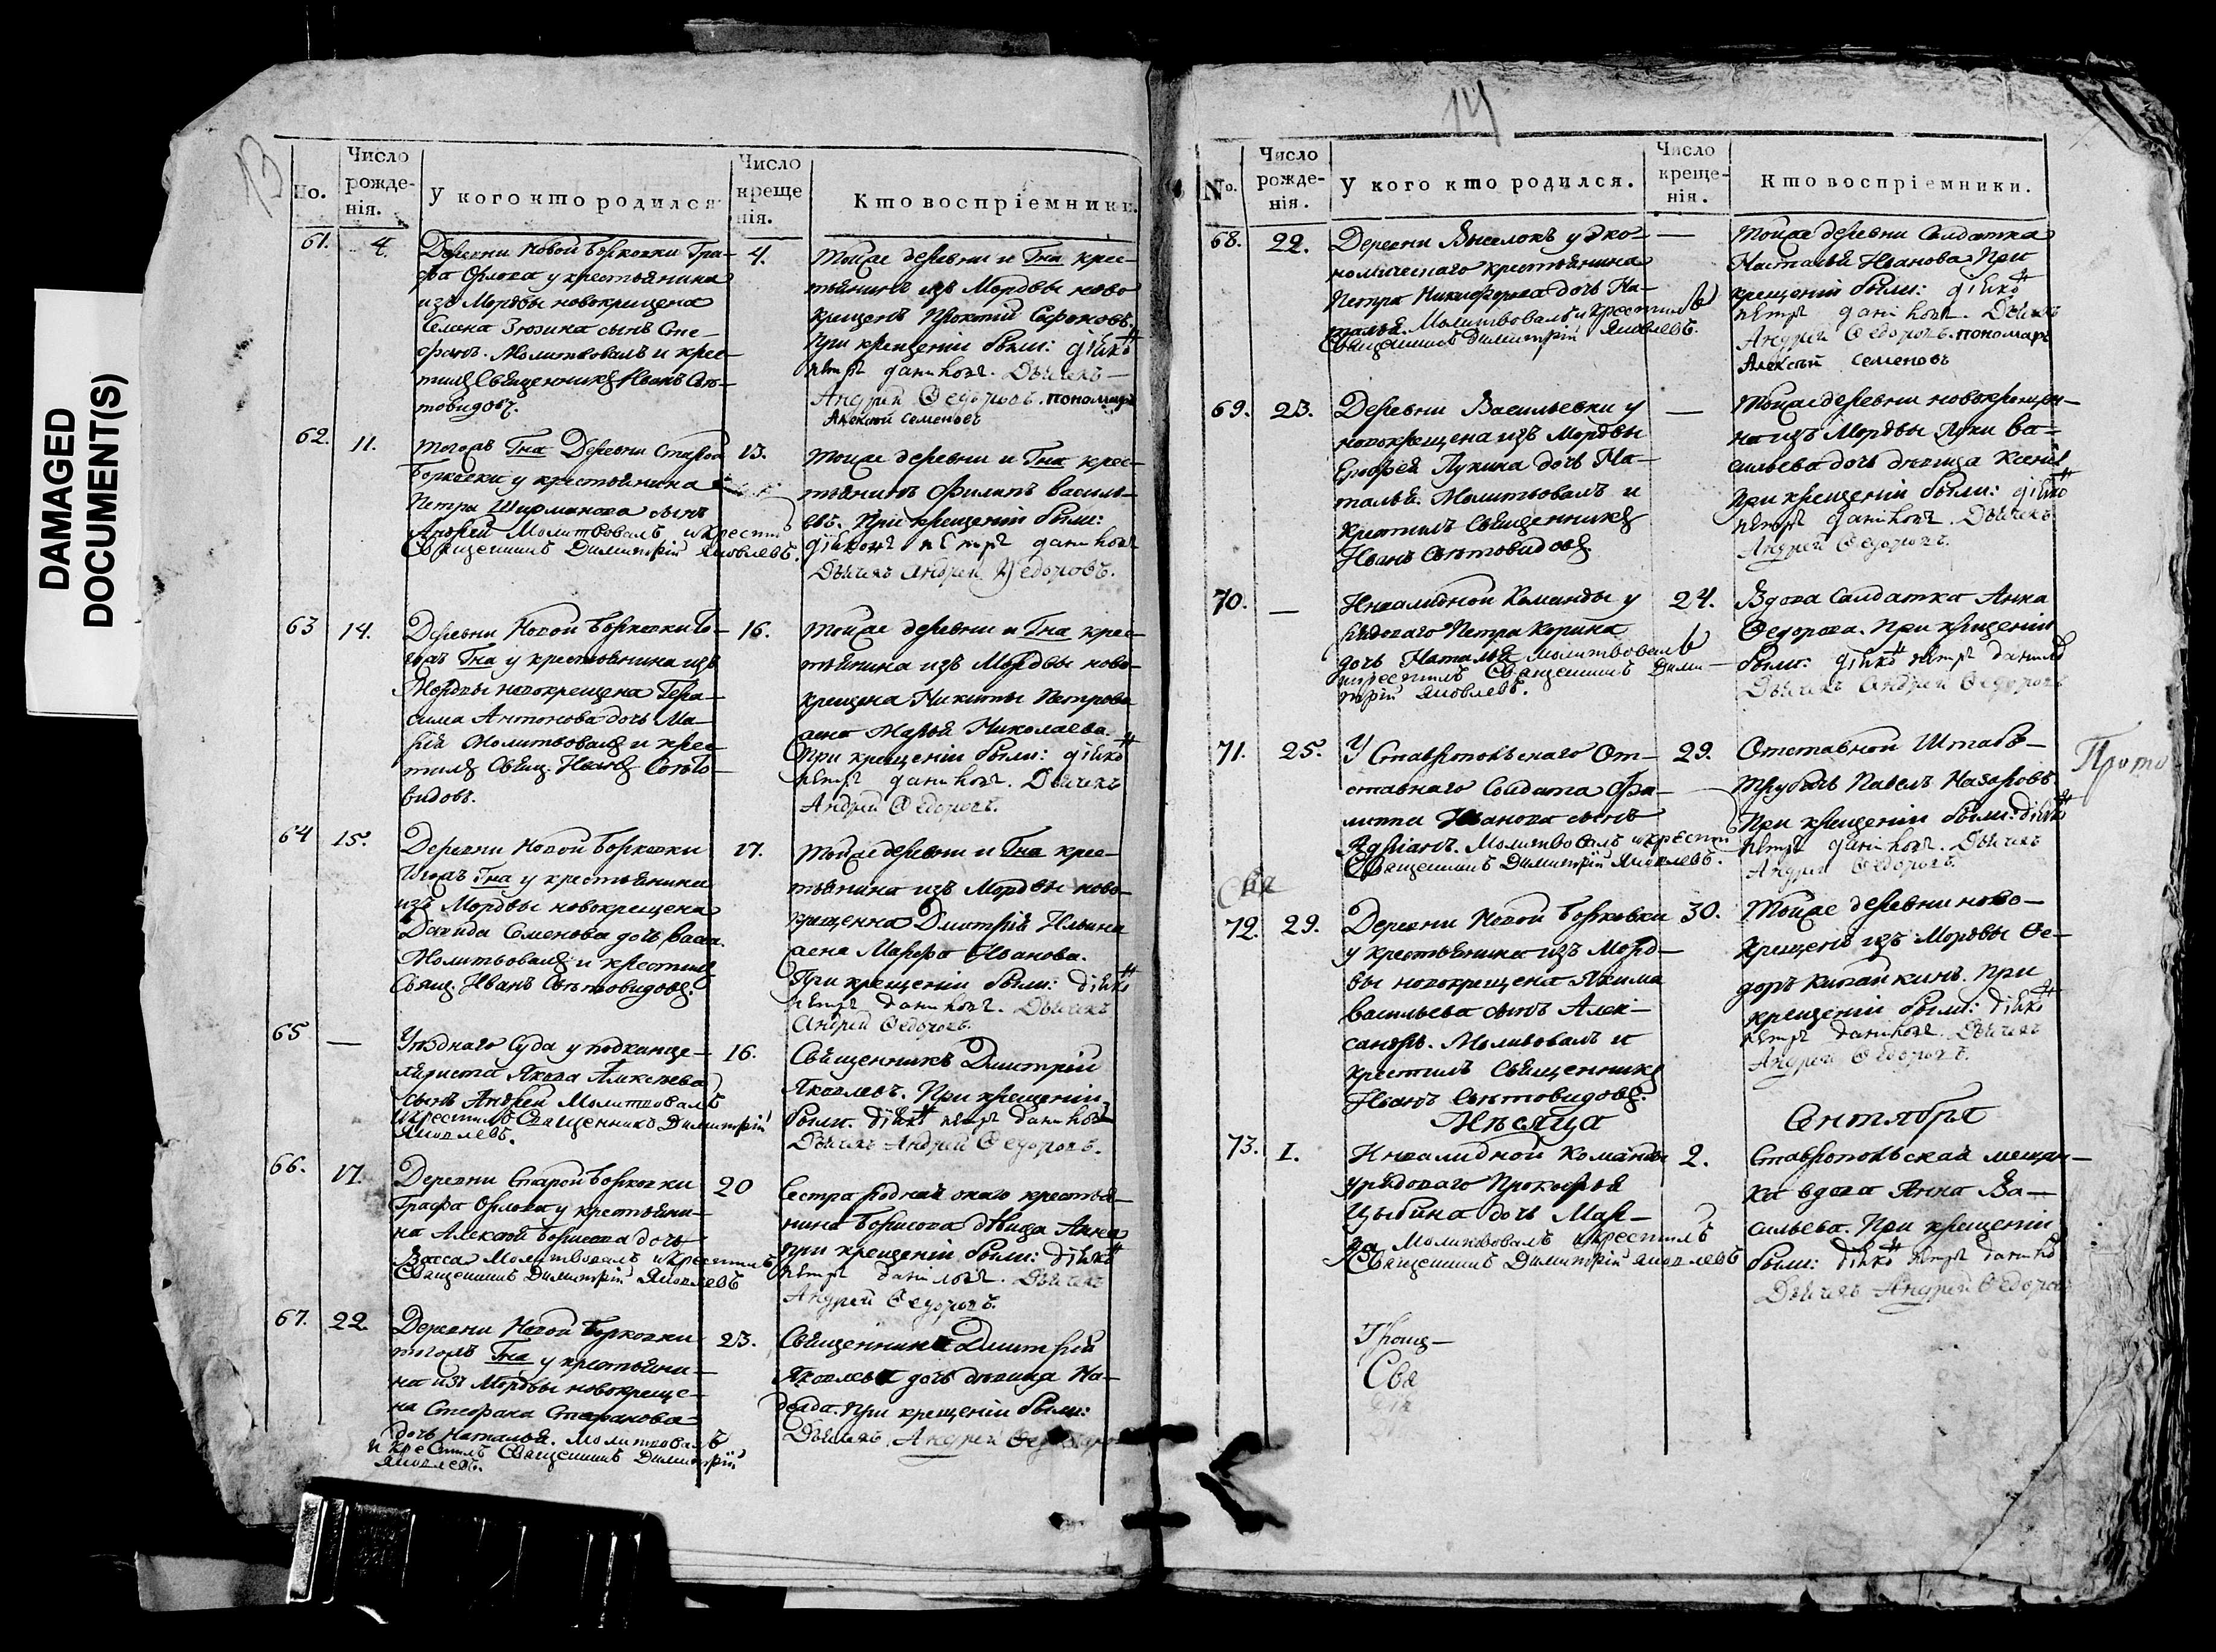 DAMAGED
DOCUMENT(S)
13
No.
Число
рожде-
нія.
У кого кто родился.
Число
креще
нія.
Кто воспріемники.
61.
4.
Деревни Новой Борковки Гра-
фа Орлова у крестьянина
изъ Мордвы новокрещена
Семена Зюзина сынъ Сте-
фанъ. Молитвовалъ и крес-
тилъ Священникъ Иванъ Свѣ-
товидовъ.
4.
Тойже деревни и Гна крес-
тьянинъ изъ Мордвы ново
крещенъ Прокофій Сафоновъ.
При крещеніи были: діякон
петръ данилов. Дьячекъ
Андрей Ѳедоровъ. пономарь
Алексѣй Семеновъ
62.
11.
Тогожъ Гна Деревни Старой
Борковки у крестьянина
Петра Ширманова сынъ
Андрей Молитвовалъ и крестилъ
Священникъ Димитрій Яковлевъ.
13.
Тойже деревни и Гна крес-
тьянинъ Филипъ Василь-
евъ. При крещеніи были:
діяконъ петръ данилов
Дьячекъ Андрей Ѳедоровъ.
63
14.
Деревни Новой Борковки то-
гожъ Гна у крестьянина изъ
Мордвы новокрещена Гера-
сима Антонова дочь Ма-
рія Молитвовалъ и крес-
тилъ Свящ. Иванъ Свѣто-
видовъ.
16.
Тойже деревни и Гна крес-
тьянина изъ Мордвы ново-
крещена Никиты Петрова
жена Марья Николаева.
При крещеніи были: діякон
петръ данилов. Дьячекъ
Андрей Ѳедоровъ.
64
15.
Деревни Новой Борковки
тогожъ Гна у крестьянина
изъ Мордвы новокрещена
Давида Семенова дочь Васа.
Молитвовалъ и крестилъ
Свящ. Иванъ Свѣтовидовъ.
17.
Тойже деревни и Гна крес-
тьянина изъ Мордвы ново-
крещенна Дмитрія Ильина
жена Марфа Иванова.
При крещеніи были: діякон
петръ данилов. Дьячекъ
Андрей Ѳедоровъ.
65
—
Уѣзднаго Суда у подканце-
ляриста Якова Алексѣева
сынъ Андрей Молитвовалъ
и крестилъ Священникъ Димитрій
Яковлевъ.
16.
Священникъ Дмитрій
Яковлевъ. При крещеніи
были. діякон петръ данилов
Дьячекъ Андрей Ѳедоровъ.
66.
17.
Деревни Старой Борковки
Графа Орлова у крестьяни-
на Алексѣя Борисова дочь
Васса Молитвовалъ и крестилъ
Священникъ Димитрій Яковлевъ
20
Сестра родная онаго крестья-
нина Борисова дѣвица Анна
При крещеніи были: діякон
петръ данилов. Дьячекъ
Андрей Ѳедоровъ.
67.
22.
Деревни Новой Борковки
тогожъ Гна у крестьяни-
на изъ Мордвы новокреще-
на Стефана
дочь Наталья. Молитвовалъ
и крестилъ Священникъ Димитрій
Яковлевъ.
23.
Священника Дмитрія
Яковлева дочь дѣвица На-
дежда. При крещеніи были:
Дьячекъ Андрей
14
No.
Число
рожде-
нія.
У кого кто родился.
Число
креще-
нія.
Кто воспріемники.
68.
22.
Деревни Выселокъ у эко-
номическаго крестьянина
Петра Никифорова дочь На-
талья. Молитвовалъ и крестилъ
Священникъ Димитрій Яковлевъ.
—
Тойже деревни Солдатка
Наталья Иванова При
крещеніи были: діякон
петръ данилов. Дьячекъ
Андрей Ѳедоровъ. пономарь
Алексѣй Семеновъ
69.
23.
Деревни Васильевки у
новокрещена изъ Мордвы
Ерофея Лукина дочь На-
талья. Молитвовалъ и
крестилъ Священникъ
Иванъ Свѣтовидовъ.
—
Тойже деревни новокреще-
на изъ Мордвы Луки Ва-
сильева дочь дѣвица Ксенія
При крещеніи были: діякон
петръ данилов. Дьячекъ
Андрей Ѳедоровъ.
70.
—
Инвалидной Команды у
рядоваго Петра Корина
дочь Наталья Молитвовалъ
и крестилъ Священникъ Дими-
трій Яковлевъ.
24.
Вдова Салдатка Анна
Ѳедорова. При крещеніи
были: діякон петръ данилов
Дьячекъ Андрей Ѳедоровъ
71.
25.
У Ставропольскаго От-
ставнаго Солдата Фи-
липпа Иванова сынъ
Адріанъ. Молитвовалъ и крестилъ
Священникъ Димитрій Яковлевъ.
29.
Отставной Штабъ-
трубачъ Павелъ Назаровъ
При крещеніи были: діякон
петръ данилов. Дьячекъ
Андрей Ѳедоровъ.
Прото
Свя
72.
29.
Деревни Новой Борковки
у крестьянина изъ Морд-
вы новокрещена Якима
Васильева сынъ Алек-
сандръ. Моливовалъ и
крестилъ Священникъ
Иванъ Свѣтовидовъ.
30.
Тойже деревни ново-
крещенъ изъ Мордвы Ѳе-
доръ Китайкинъ. При
крещеніи были: діякон
петръ данилов. Дьячекъ
Андрей Ѳедоровъ.
Мѣсяца Сентября
73.
1.
Инвалидной Команды
у рядоваго Прокофья
Цыбина дочь Мар-
ѳа Молитвовалъ и крестилъ
Священникъ Димитрій Яковлевъ
2.
Ставропольская мещан-
ка вдова Анна Ва-
сильева. При крещеніи
были: діякон петръ данилов
Дьячекъ Андрей Ѳедоров
Свя